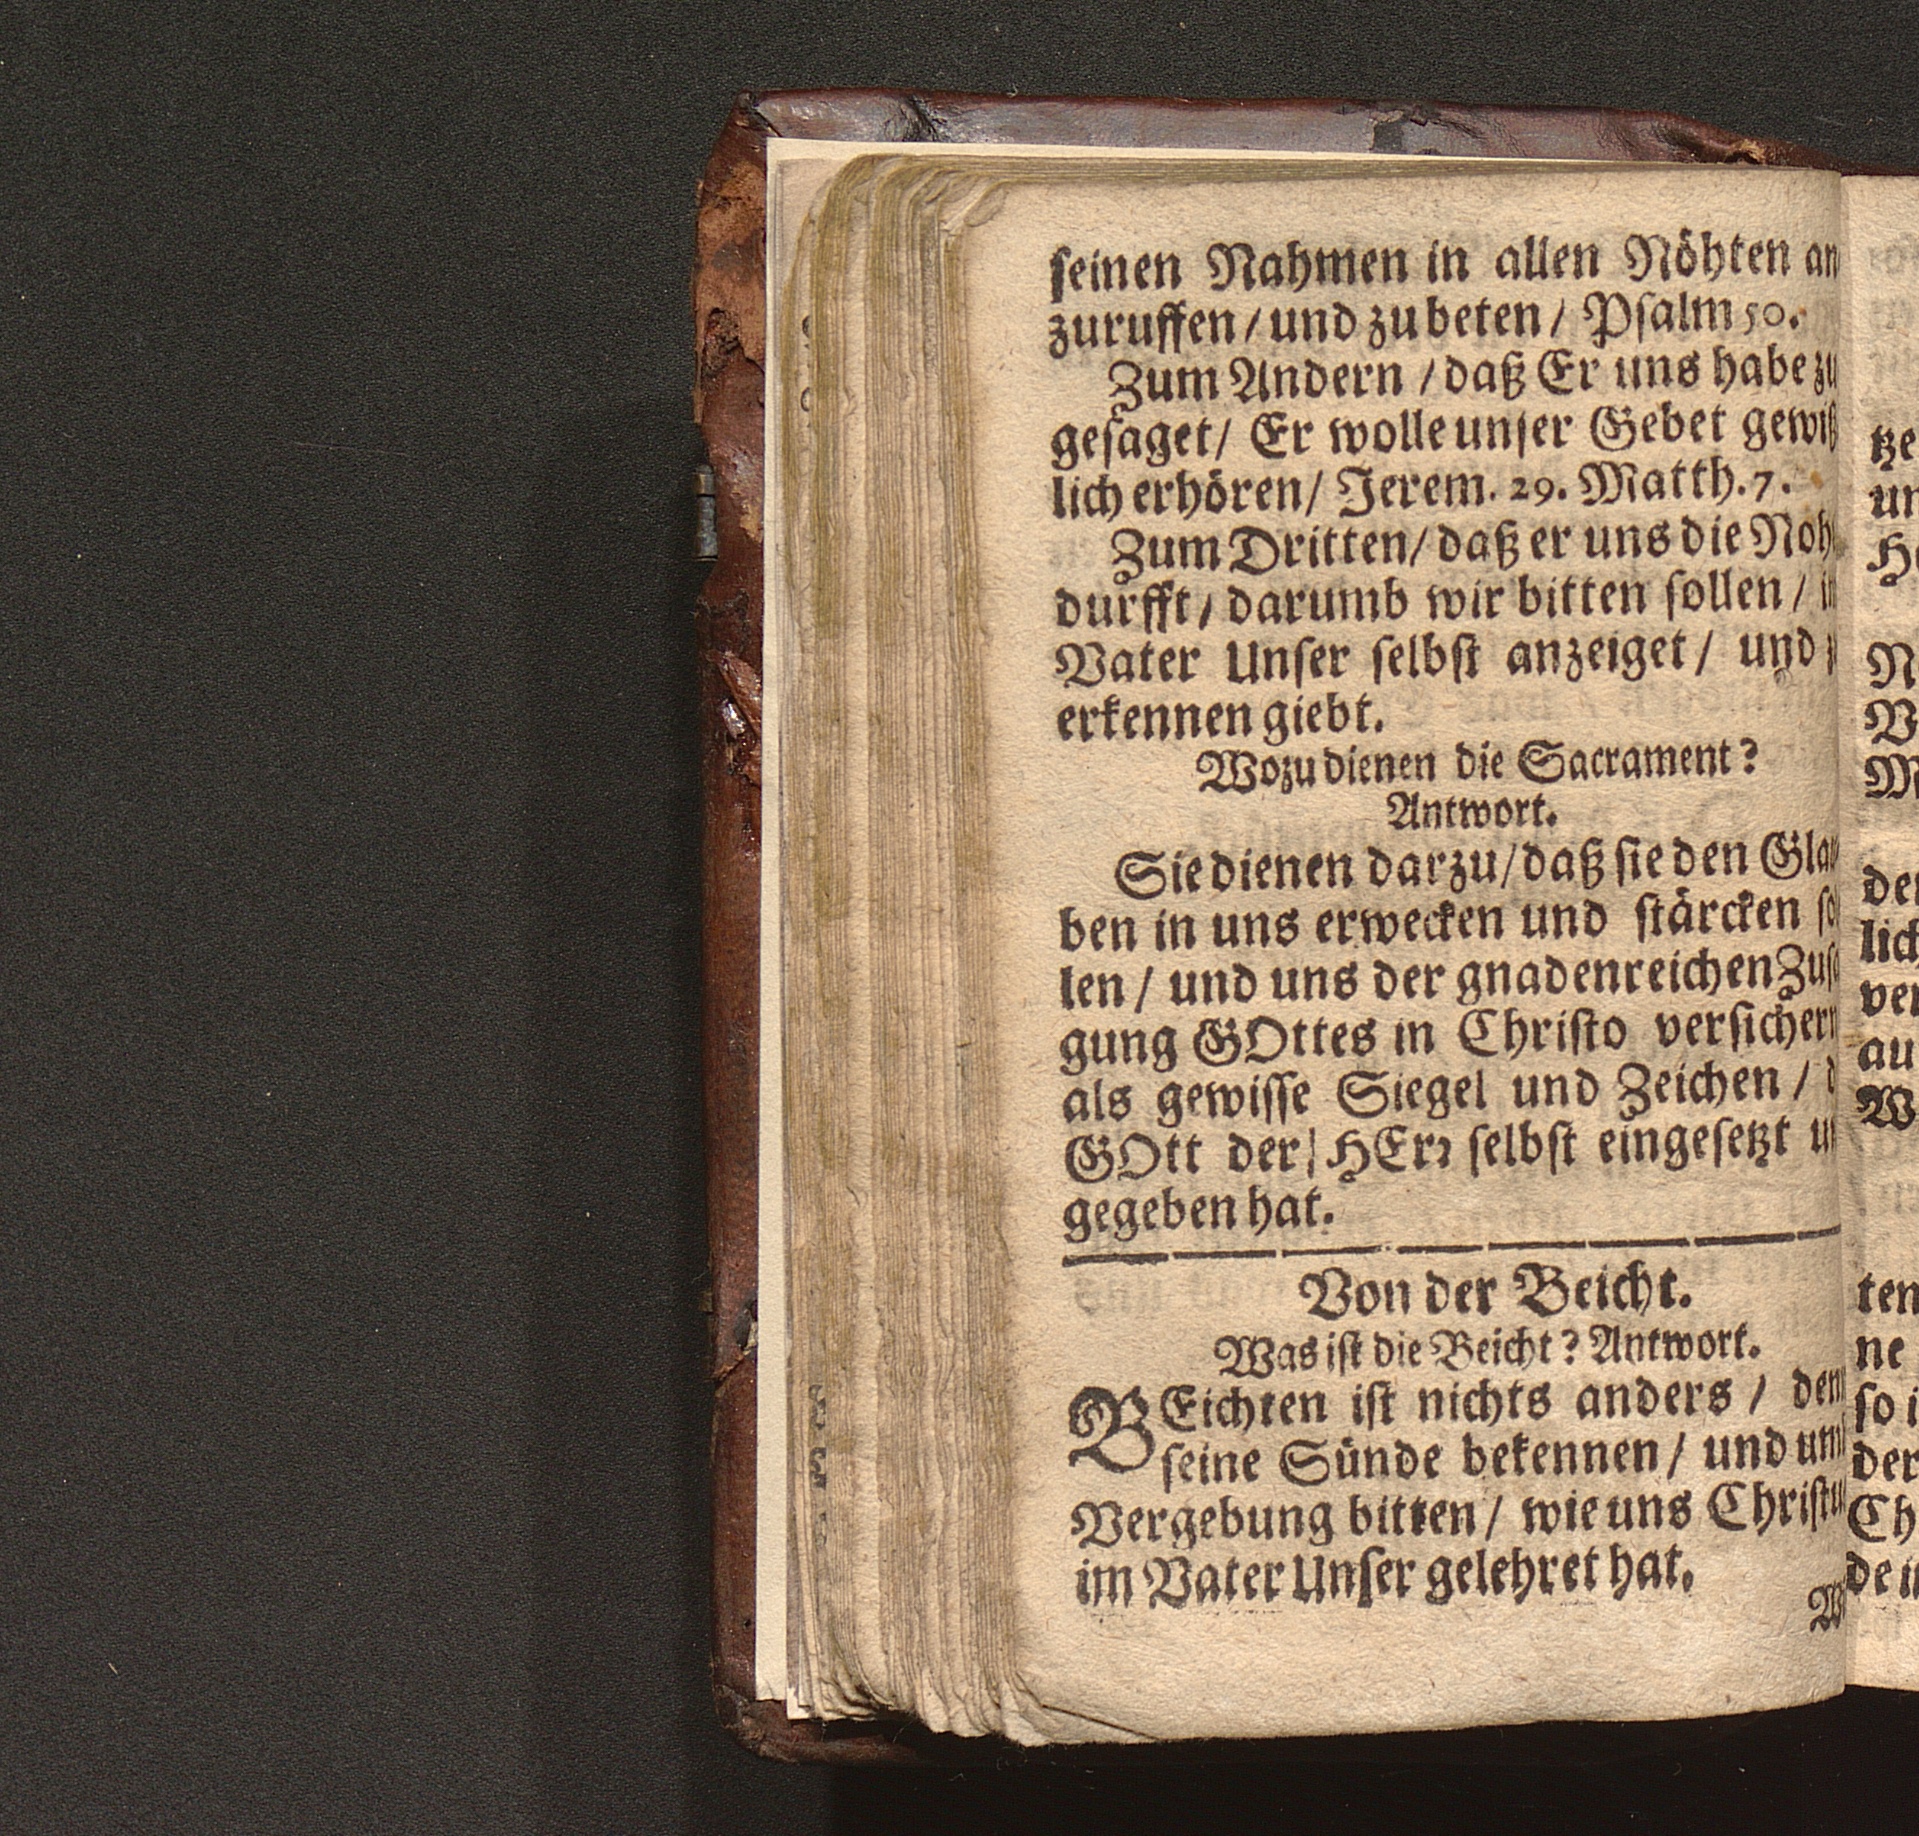 seinen Nahmen in allen Nöhten an
zuruffen / und zu beten / Psalm 50.
Zum Andern / daß Er uns habe zu
gesaget / Er wolle unser Gebet gewiß
lich erhören / Jerem. 29. Matth. 7.
Zum Dritten / daß er uns die Noh
durfft / darumb wir bitten sollen /
Vater Unser selbst anzeiget / und
erkennen giebt.
Wozu dienen die Sacrament?
Antwort.
Sie dienen darzu / daß sie den Glau
ben in uns erwecken und stärcken sol
len / und uns der gnadenreichen Zusa
gung GOttes in Christo versichern
als gewisse Siegel und Zeichen /
GOtt der HErr selbst eingesetzt
gegeben hat.
Von der Beicht.
Was ist die Beicht? Antwort.
BEichten ist nichts anders / denn
seine Sünde bekennen / und umb
Vergebung bitten / wie uns Christu
im Vater Unser gelehret hat.